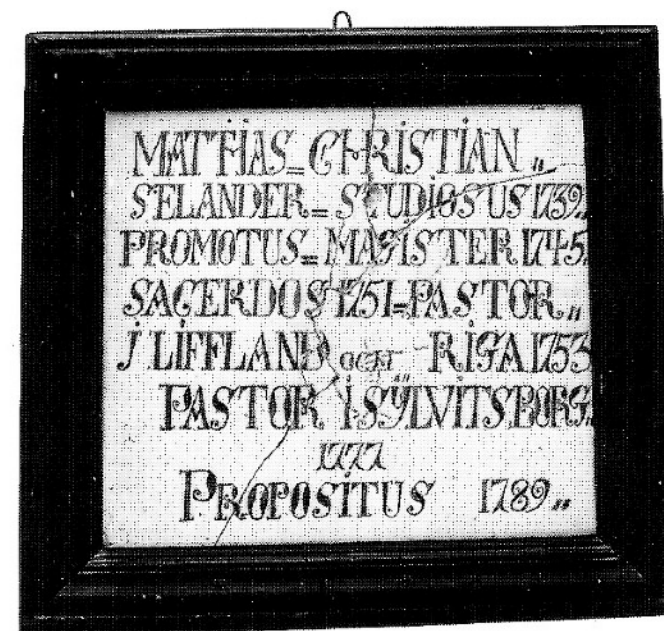 MATTHIAS = CHRISTIAN „
SELANDER = STUDIOSUS 1739„
PROMOTUS = MAGISTER 1745„
SACERDOS 1751 = PASTOR „
J LIFFLAND OCH RIGA 1753
PASTOR I SYLVITSBORG„
1777
PROPOSITUS 1789 „